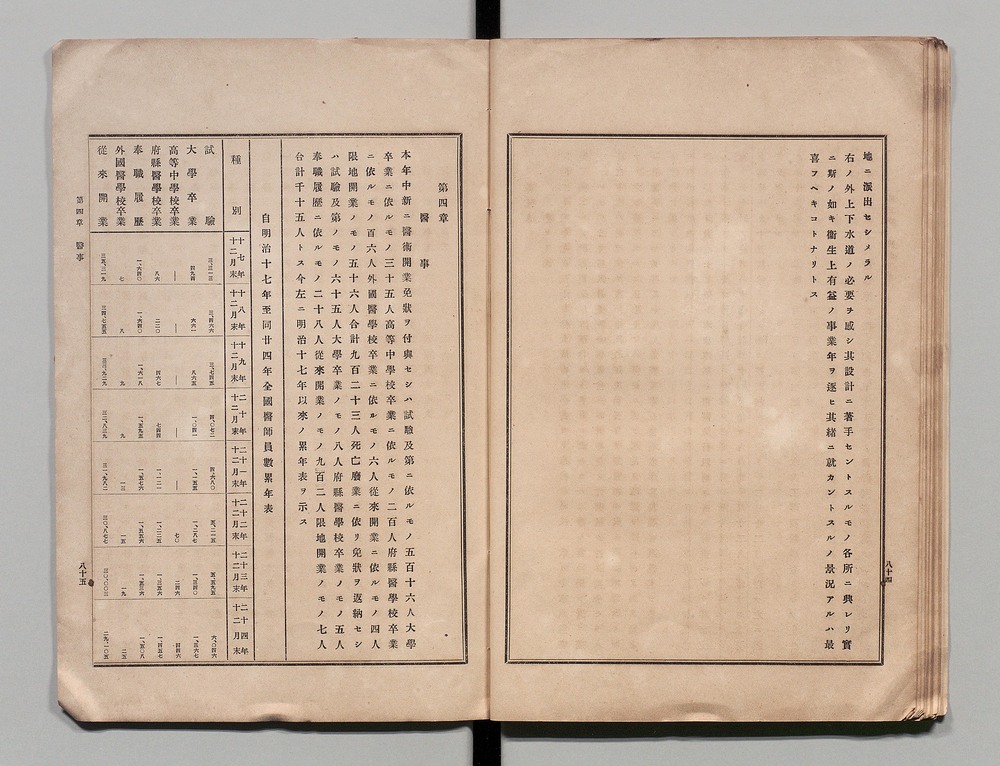 地ニ派出セシメラル
右ノ外上下水道ノ必要ヲ感シ其設計ニ著手セントスルモノ各所ニ興レリ實
ニ斯ノ如キ衞生上有益ノ事業年ヲ逐ヒ其緒ニ就カントスルノ景況アルハ最
喜フヘキコトナリトス
八十四
第四章
醫事
本年中新ニ醫術開業免狀ヲ付與セシハ試驗及第ニ依ルモノ五百十六人大學
卒業ニ依ルモノ三十五人高等中學校卒業ニ依ルモノ二百人府縣醫學校卒業
ニ依ルモノ百六人外國醫學校卒業ニ依ルモノ六人從來開業ニ依ルモノ四人
限地開業ノモノ五十六人合計九百二十三人死亡廢業ニ依リ免狀ヲ返納セシ
ハ試驗及第ノモノ六十五人大學卒業ノモノ八人府縣醫學校卒業ノモノ五人
奉職履歷ニ依ルモノ二十八人從來開業ノモノ九百二人限地開業ノモノ七人
合計千十五人トス今左ニ明治十七年以來ノ累年表ヲ示ス
自明治十七年至同廿四年全國醫師員數累年表
種別 十七年十二月末 十八年十二月末 十九年十二月末 二十年十二月末 二十一年十二月末 二十二年十二月末 二十三年十二月末 二十四年十二月末
試驗
大學卒業
高等中學校卒業 ― ― ― ― ― 七〇 二四六 四四六
府縣醫學校卒業
奉職履歷
外國醫學校卒業 七 八 九 九 一三 一五 一九 二五
從來開業
第四章 醫事
八十五